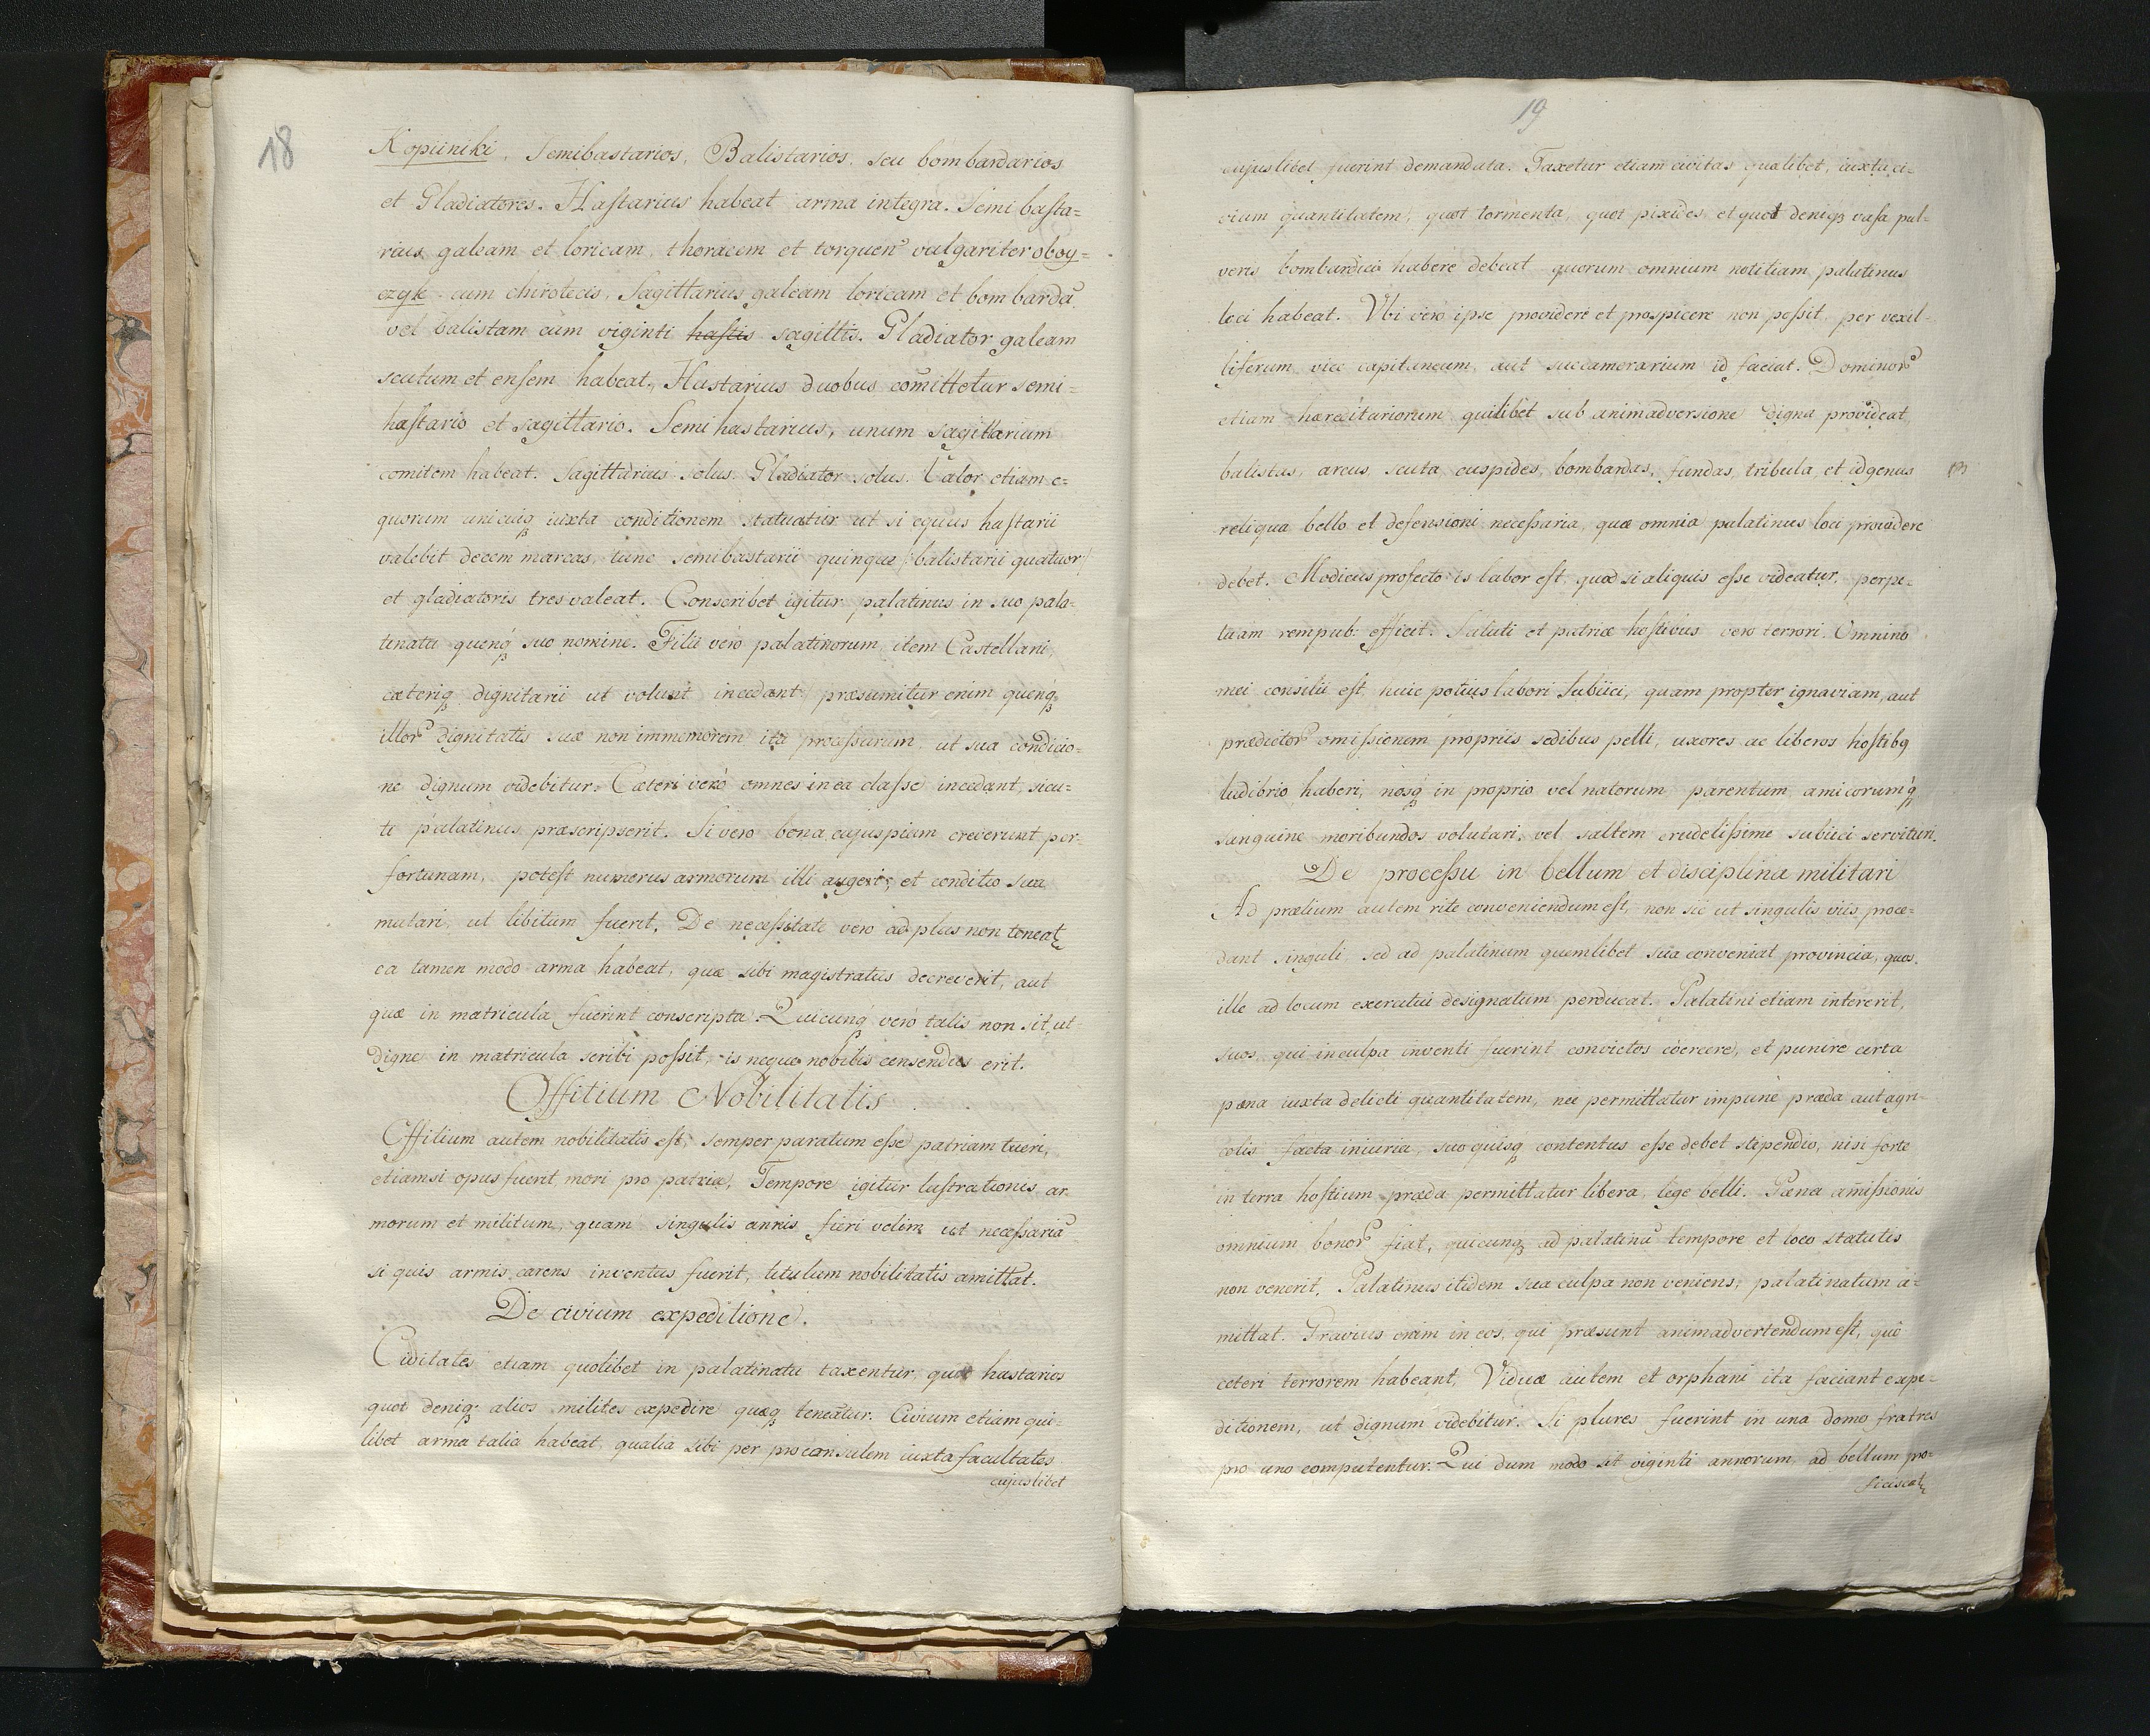 18
Kopiiniki, Semibastarios, Balistarios, seu bombardarios
et Gladiatores. Haſtarius habeat arma integra. Semi baſta=
rius galeam et loricam, thoracem et torquen̄ vulgariter oboy=
czyk cum chirotecis, Sagittarius galeam loricam et bombardā
vel balistam cum viginti haſtis sagittis. Gladiator galeam
scutum et enſem habeat. Hastarius duobus com̄ittetur semi=
haſtario et sagittario. Semi hastarius, unum sagittarium
comitem habeat. Sagittarius solus. Gladiator solus. Valor etiam e=
quorum unicuiqꝫ iuxta conditionem statuatur ut si equus haſtarii
valebit decem marcas, tunc semibastarii quinque /:balistarii quatuor:/
et gladiatoris tres valeat. Conscribet igitur palatinus in suo pala=
tinatu quenqꝫ suo nomine. Filii vero palatinorum, item Castellani,
cæteriqꝫ dignitarii ut volunt incedant, præsumitur enim quenqꝫ
illorꝫ dignitatis suæ non immemorem ita proceſsurum, ut sua condicio=
ne dignum videbitur. Cæteri vero omnes in ea claſse incedant, sicu=
ti palatinus præscripserit. Si vero bona cujuspiam creverunt per
fortunam, poteſt numerus armorum illi augeri, et conditio sua
mutari, ut libitum fuerit. De neceſsitate vero ad plus non teneat̃
ea tamen modo arma habeat, quæ sibi magistratus decreverit, aut
quæ in matricula fuerint conscripta. Quicunqꝫ vero talis non sit, ut
digne in matricula scribi poſsit, is neque nobilis censendus erit.
Offitium Nobilitatis
Offitium autem nobilitatis eſt, semper paratum eſse patriam tueri,
etiamsi opus fuerit mori pro patria. Tempore igitur luſtrationis ar=
morum et militum, quam singulis annis fieri velim ut neceſsariā
si quis armis carens inventus fuerit, titulum nobilitatis amittat.
De civium expeditione.
Civitates etiam quolibet in palatinatu taxentur, quot hastarios
quot deniqꝫ alios milites expedire quæqꝫ teneatur. Civium etiam qui=
libet arma talia habeat, qualia sibi per proconsulem iuxta facultates
cujuslibet
19
cujuslibet fuerint demandata. Taxetur etiam civitas quælibet, iuxta ci=
vium quantitatem, quot tormenta, quot pixides, et quot deniqꝫ vaſa pul=
veris bombardici habere debeat quorum omnium notitiam palatinus
loci habeat. Vbi vero ipse providere et prospicere non poſsit, per vexil=
liferum, vice capitaneum, aut succamerarium id faciat. Dominorꝫ
etiam hæreditariorum quilibet sub animadversione digna provideat,
balistas, arcus, scuta, cuspides, bombardas, fundas, tribula, et id genus
reliqua bello et defensioni neceſsaria, quæ omnia palatinus loci providere
debet. Modicus profecto is labor eſt, quod si aliquis eſse videatur, perpe=
tuam rempub: efficit. Saluti et patriæ hoſtibus vero terrori. Omnino
mei consilii eſt, huic potius labori subiici, quam propter ignaviam, aut
prædictorꝫ omiſsionem propriis sedibus pelli, uxores ac liberos hoſtibꝫ
ludibrio haberi, nosqꝫ in proprio vel natorum, parentum, amicorumqꝫ
sanguine moribundos volutari, vel saltem crudeliſsime subiici servituti.
De proceſsu in bellum et disciplina militari
Ad prælium autem rite conveniendum eſt, non sic ut singulis viis proce=
dant singuli, sed ad palatinum quemlibet sua conveniat provincia, quos
ille ad locum exercitui designatum perducat. Palatini etiam intererit,
suos, qui in culpa inventi fuerint convictos coercere, et punire certa
pæna iuxta delicti quantitatem, nec permittatur impune præda aut agri=
colis facta iniuria, suo quisqꝫ contentus eſse debet stipendio, nisi forte
in terra hoſtium præda permittatur libera, lege belli. Pæna amiſsionis
omnium bonorꝫ fiat, quicunqꝫ ad palatinū tempore et loco statutis
non venerit. Palatinus itidem sua culpa non veniens, palatinatum a=
mittat. Gravius enim in eos, qui præsunt animadvertendum eſt, quo
ceteri terrorem habeant. Viduæ autem et orphani ita faciant expe=
ditionem, ut dignum videbitur. Si plures fuerint in una domo fratres
pro uno computentur. Qui dum modo sit viginti annorum, ad bellum pro=
ficiscat̃